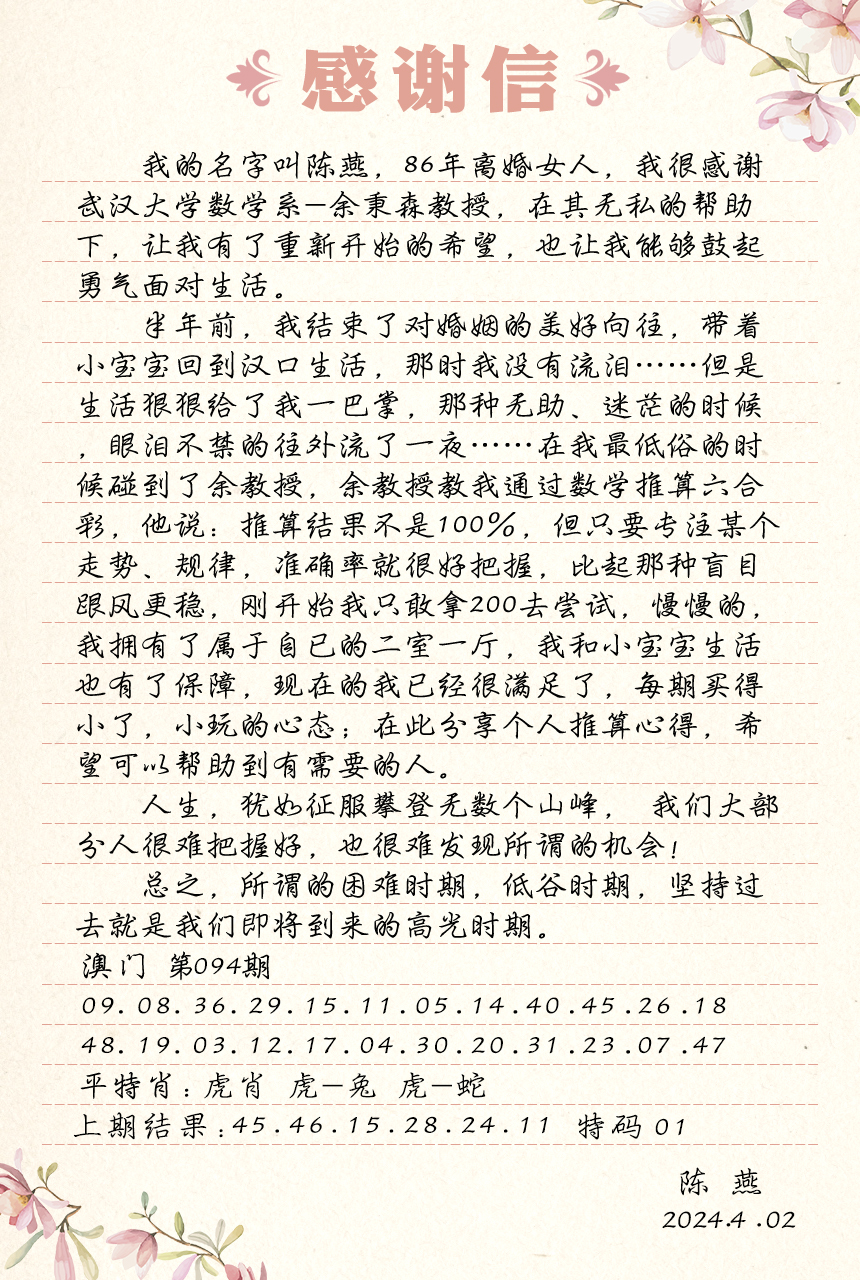 感谢信
我的名字叫陈燕，86年离婚女人，我很感谢
武汉大学数学系—余秉森教授，在其无私的帮助
下，让我有了重新开始的希望，也让我能够鼓起
勇气面对生活。
半年前，我结束了对婚姻的美好向往，带着
小宝宝回到汉口生活，那时我没有流泪……但是
生活狠狠给了我一巴掌，那种无助、迷茫的时候
，眼泪不禁的往外流了一夜……在我最低俗的时
候碰到了余教授，余教授教我通过数学推算六合
彩，他说：推算结果不是100%，但只要专注某个
走势、规律，准确率就很好把握，比起那种盲目
跟风更稳，刚开始我只敢拿200去尝试，慢慢的，
我拥有了属于自已的二室一厅，我和小宝宝生活
也有了保障，现在的我已经很满足了，每期买得
小了，小玩的心态；在此分享个人推算心得，希
望可以帮助到有需要的人。
人生，犹如征服攀登无数个山峰， 我们大部
分人很难把握好，也很难发现所谓的机会！
总之，所谓的困难时期，低谷时期，坚持过
去就是我们即将到来的高光时期。
澳门 第094期
09.08.36.29.15.11.05.14.40.45.26.18
48.19.03.12.17.04.30.20.31.23.07.47
平特肖：虎肖 虎—兔 虎—蛇
上期结果：45.46.15.28.24.11 特码 01
陈 燕
2024.4.02